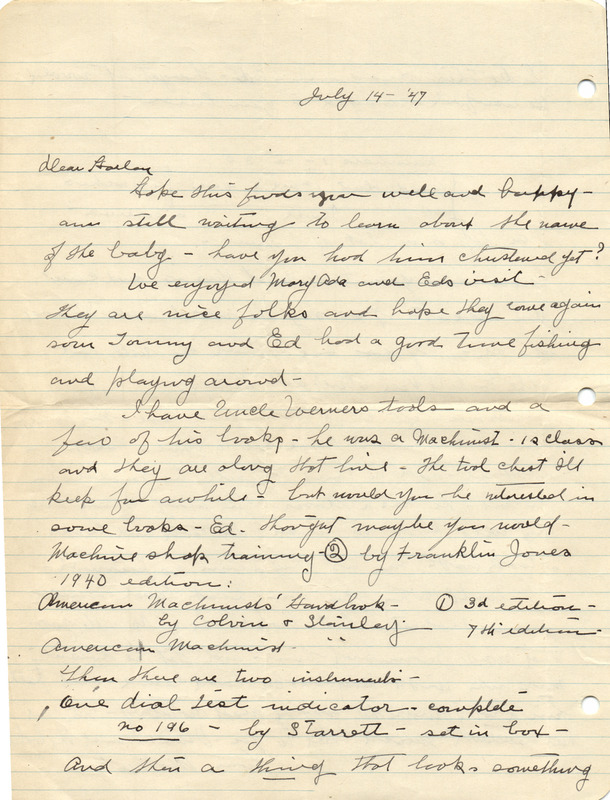 July 14 - '47
Dear Harlan
Hope this finds you well and happy -
am still waiting to learn about the name
of the baby - have you had him christened yet?
We enjoyed Mary Ada and Eds visit -
They are nice folks and hope they come again
soon Tommy and Ed had a good time fishing
and playing around -
I have Uncle Werners tools and a
few of his books - he was a Machinist - 1s class
and they are along that line - The tool chest Ill
keep for awhile - but would you be interested in
some books - Ed. thought maybe you would -
Machine shop training - ② by Franklin Jones
1940 edition:
American Machinists' Handbook - ① 3d edition -
by Colvin & Stanley. 7th edition -
American Machinist - " "
Then there are two instruments -
One dial test indicator - complete
no 196 - by Starrett - set in box -
And then a thing that looks something